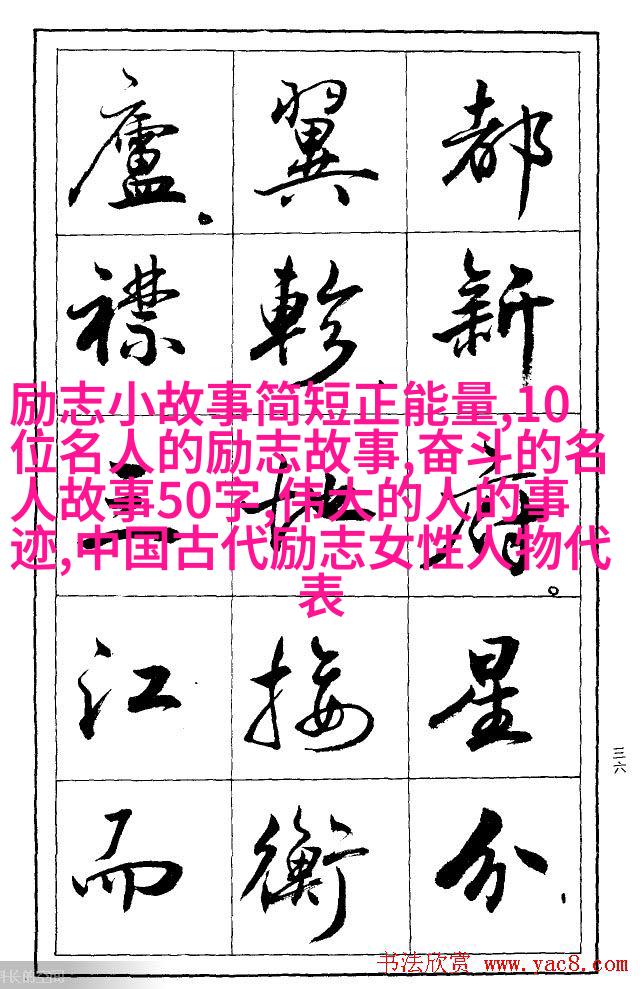 都新府。星分、
翼軫、地接衡
廬。襟三江而
励志小故事简短正能量,10
位名人的励志故事,奋斗的名
人故事50字,伟大的人的事
迹,中国古代励志女性人物代
表
三六
书法欣赏 www.yac8.com
长的空间